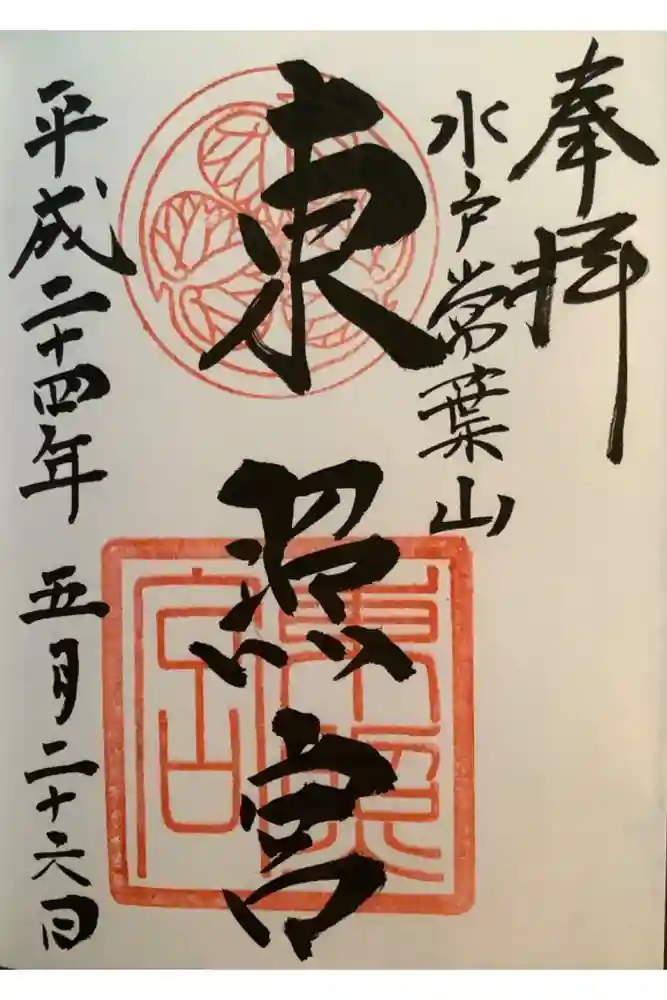 奉拝
水戸常葉山
東照宮
平成二十四年 五月二十六日
東照宮